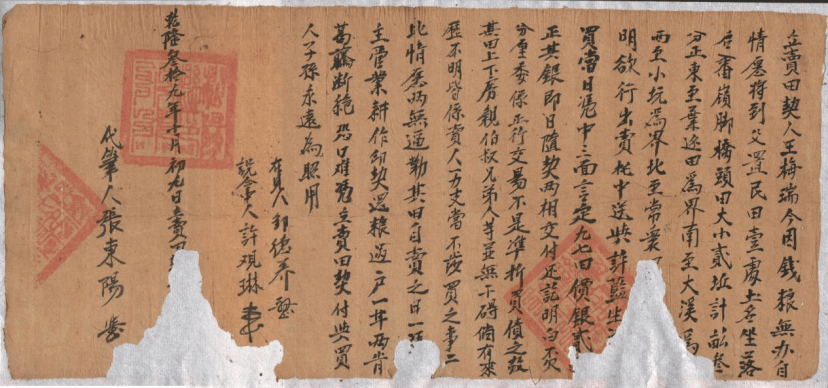 立賣田契人王梅瑞今因錢粮無办自
情愿将到父置民田壹處土名坐落
后畬嶺脚橋頭田大小貳坵計畝叁
分正東至葉边田為界南至大溪為
西至小坑為界北至常
明欲行出賣托中送與許藍生
買當日憑中三面言定九七田價銀貳
正其銀即日隨契两相交付还記明白不欠
分厘委係正行交易不是準折負債之故
其田上下房親伯叔兄弟人等並無干碍倘有來
歷不明皆係賣人一力支當不涉買之事二
比情愿两無逼勒其田自賣之日一
主管業耕作印契還粮過户一年两肯
葛藤断絶恐口难憑立賣田契付與買
人子孫永遠為照用
在見人 德养
説合中人許現琳
乾隆叁拾九年十月初九日立賣田
代筆人張東陽